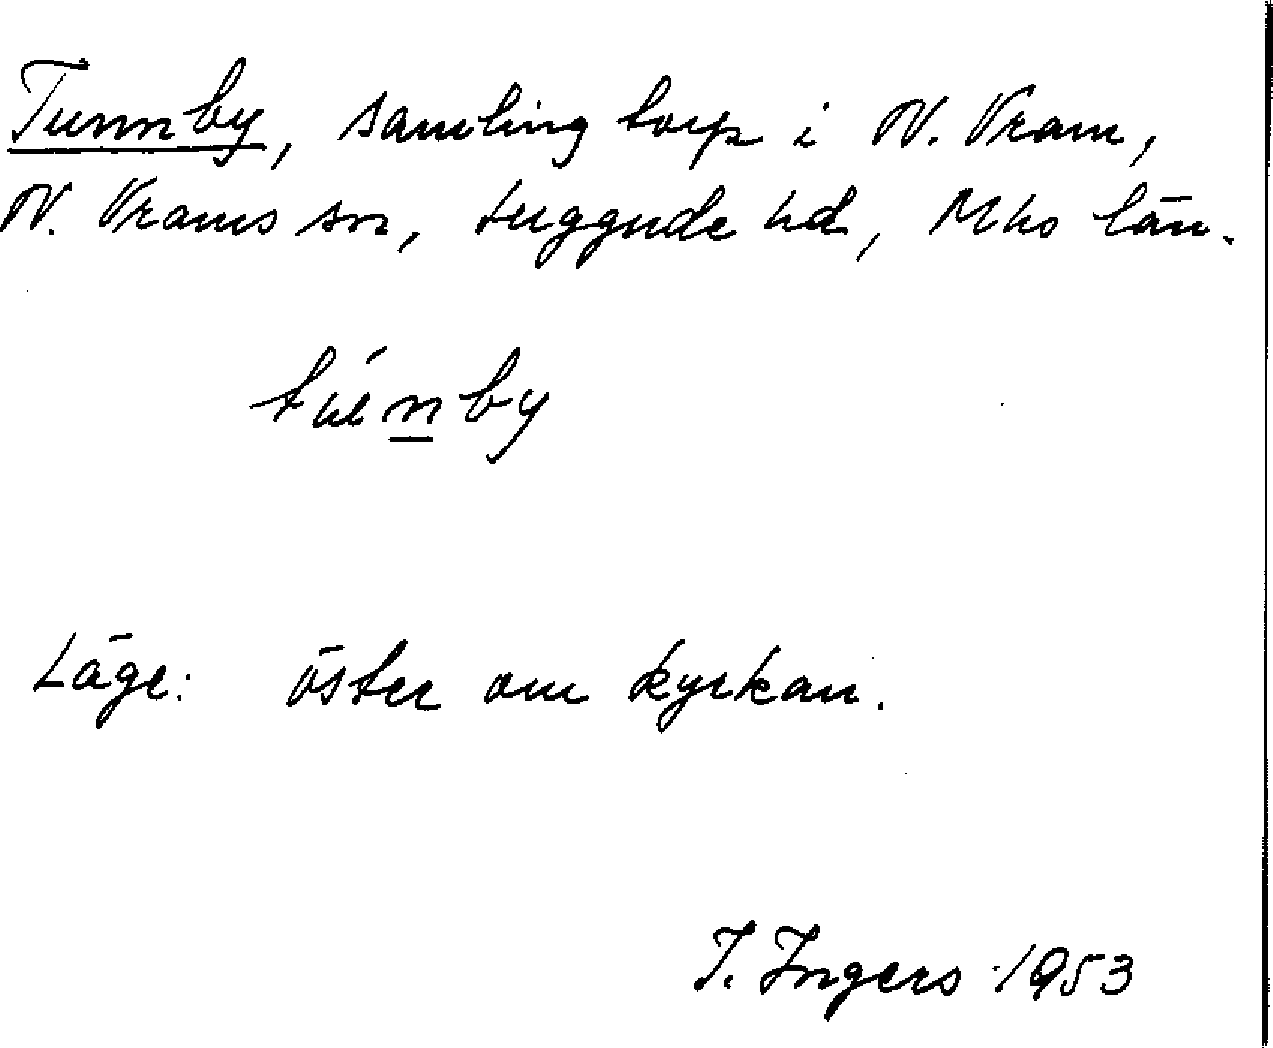 Tunnby, samling torp i N. Vram,
N. Vrams sn, Luggude hd, Mhs län.
túnby
Läge: öster om kyrkan.
I. Ingers 1953